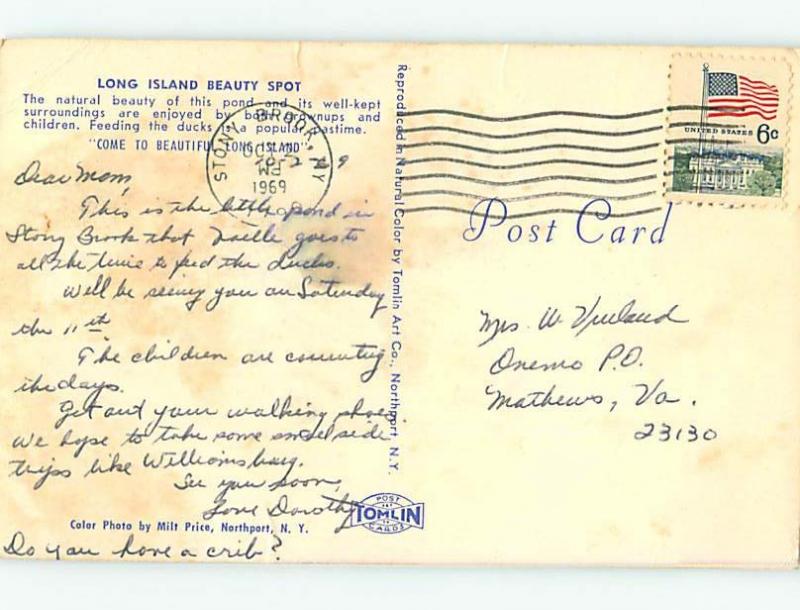 LONG ISLAND BEAUTY SPOT
The natural beauty of this pond and its well-kept
surroundings are enjoyed by both grownups and
children. Feeding the ducks is a popular pastime.
"COME TO BEAUTIFUL LONG ISLAND"
Dear Mom,
This is the little pond in
Stony Brook that Noelle goes to
all the time to feed the ducks.
Will be seeing you on Saturday
the 11th.
The children are counting
the days.
Get out your walking shoes
we hope to take some side
trips like Williamsburg.
See you soon,
Love Dorothy
Color Photo by Milt Price, Northport, N. Y.
Do you have a crib?
Reproduced in Natural Color by Tomlin Art Co., Northport, N. Y.
POST
TOMLIN
ART
CARDS
STONY BROOK, NY
OCT
PM
1969
UNITED STATES 6c
Post Card
Mrs. W. Vreeland
Onemo P.O.
Mathews, Va.
23130